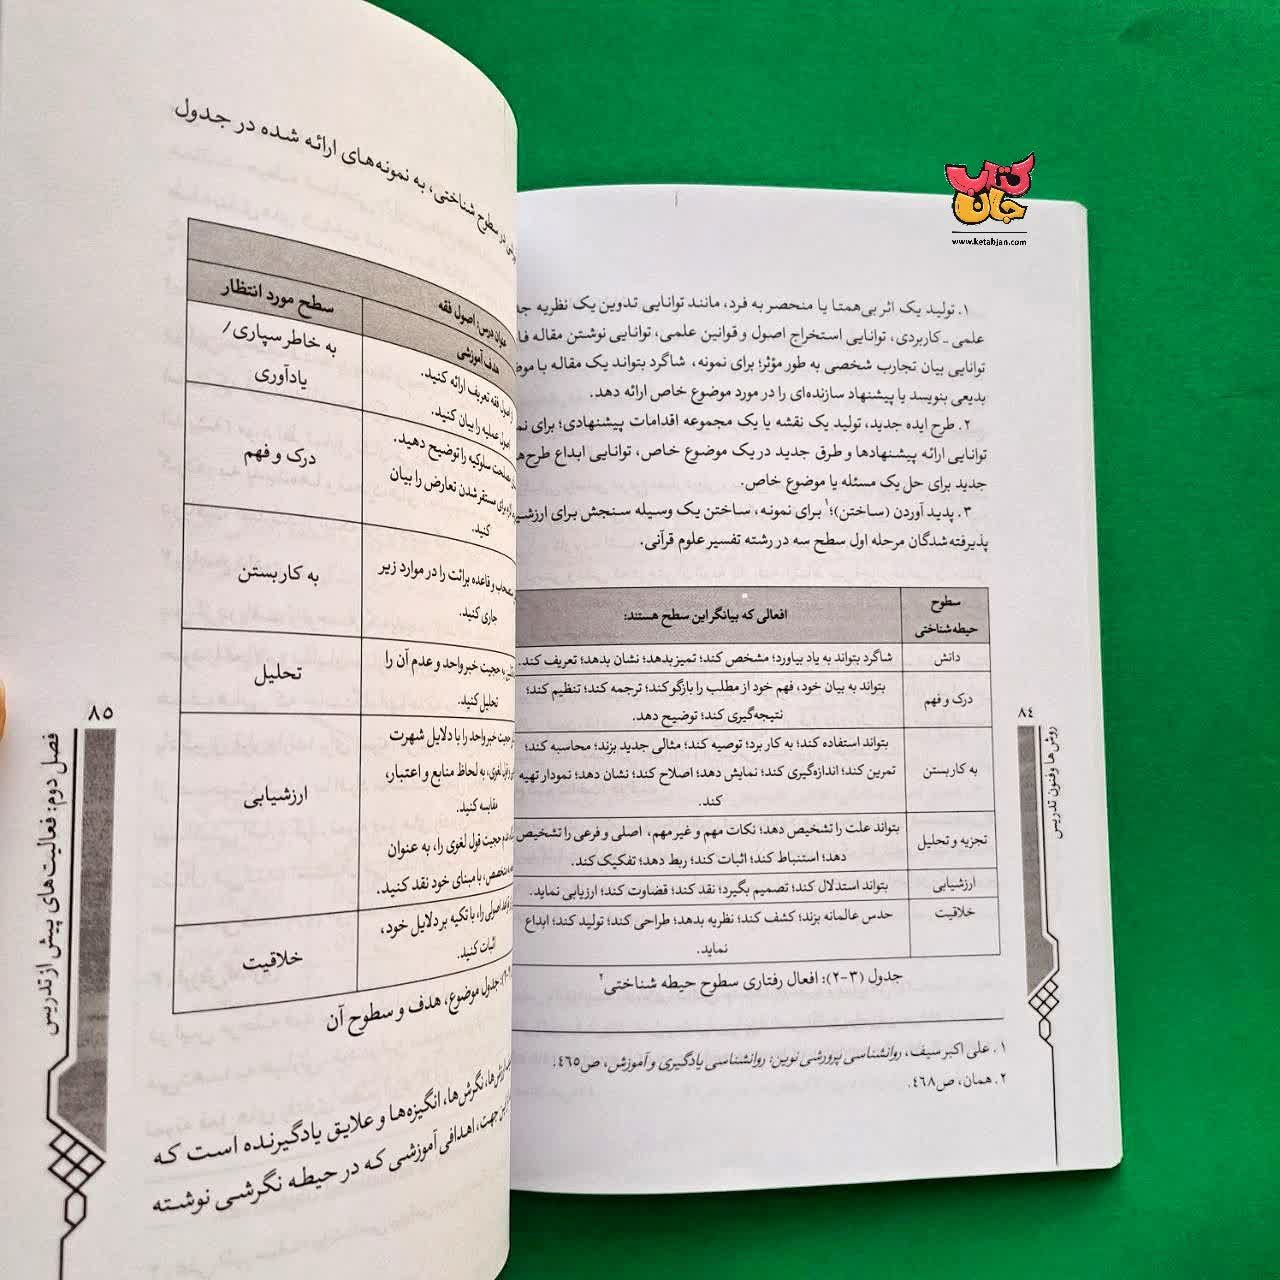 کتاب
جان
www.ketabjan.com
۱. تولید یک اثر بی‌همتا یا منحصر به فرد، مانند توانایی تدوین یک نظریه
علمی ـ کاربردی، توانایی استخراج اصول و قوانین علمی، توانایی نوشتن مقاله
توانایی بیان تجارب شخصی به طور مؤثر؛ برای نمونه، شاگرد بتواند یک مقاله با
بدیعی بنویسد یا پیشنهاد سازنده‌ای را در مورد موضوع خاص ارائه دهد.
۲. طرح ایده جدید، تولید یک نقشه یا یک مجموعه اقدامات پیشنهادی؛ برای
توانایی ارائه پیشنهادها و طرق جدید در یک موضوع خاص، توانایی ابداع
جدید برای حل یک مسئله یا موضوع خاص.
۳. پدید آوردن (ساختن)؛۱ برای نمونه، ساختن یک وسیله سنجش برای
پذیرفته‌شدگان مرحله اول سطح سه در رشته تفسیر علوم قرآنی.
سطوح حیطه‌شناختی افعالی که بیانگر این سطح هستند:
دانش شاگرد بتواند به یاد بیاورد؛ مشخص کند؛ تمیز بدهد؛ نشان بدهد؛ تعریف کند.
درک و فهم بتواند به بیان خود، فهم خود از مطلب را بازگو کند؛ ترجمه کند؛ تنظیم کند؛
نتیجه‌گیری کند؛ توضیح دهد.
به کار بستن بتواند استفاده کند؛ به کار برد؛ توصیه کند؛ مثالی جدید بزند؛ محاسبه کند؛
تمرین کند؛ اندازه‌گیری کند؛ نمایش دهد؛ اصلاح کند؛ نشان دهد؛ نمودار تهیه
کند.
تجزیه و تحلیل بتواند علت را تشخیص دهد؛ نکات مهم و غیر مهم، اصلی و فرعی را تشخیص
دهد؛ استنباط کند؛ اثبات کند؛ ربط دهد؛ تفکیک کند.
ارزشیابی بتواند استدلال کند؛ تصمیم بگیرد؛ نقد کند؛ قضاوت کند؛ ارزیابی نماید.
خلاقیت حدس عالمانه بزند؛ کشف کند؛ نظریه بدهد؛ طراحی کند؛ تولید کند؛ ابداع
نماید.
جدول (۳-۲): افعال رفتاری سطوح حیطه شناختی۲
۱. علی اکبر سیف، روانشناسی پرورشی نوین: روانشناسی یادگیری و آموزش، ص۴۶۵.
۲. همان، ص۴۶۸.
۸۴
روش‌ها و فنون تدریس
در سطوح شناختی، به نمونه‌های ارائه شده در جدول
عنوان درس: اصول فقه
هدف آموزشی سطح مورد انتظار
اصول فقه تعریف ارائه کنید. به خاطر سپاری/
اصول عملیه را بیان کنید. یادآوری
مصلحت سلوکیه را توضیح دهید. درک و فهم
برای مستقر شدن تعارض را بیان
کنید.
و قاعده برائت را در موارد زیر به کار بستن
جاری کنید.
به حجیت خبر واحد و عدم آن را تحلیل
تحلیل کنید.
حجیت خبر واحد را با دلایل شهرت ارزشیابی
قول لغوی، به لحاظ منابع و اعتبار،
مقایسه کنید.
حجیت قول لغوی را، به عنوان
متخصص، با مبنای خود نقد کنید.
را، با تکیه بر دلایل خود، خلاقیت
اثبات کنید.
جدول موضوع، هدف و سطوح آن
نگرش‌ها، انگیزه‌ها و علایق یادگیرنده است که
جهت، اهدافی آموزشی که در حیطه نگرشی نوشته
۸۵
فصل دوم: فعالیت‌های پیش از تدریس